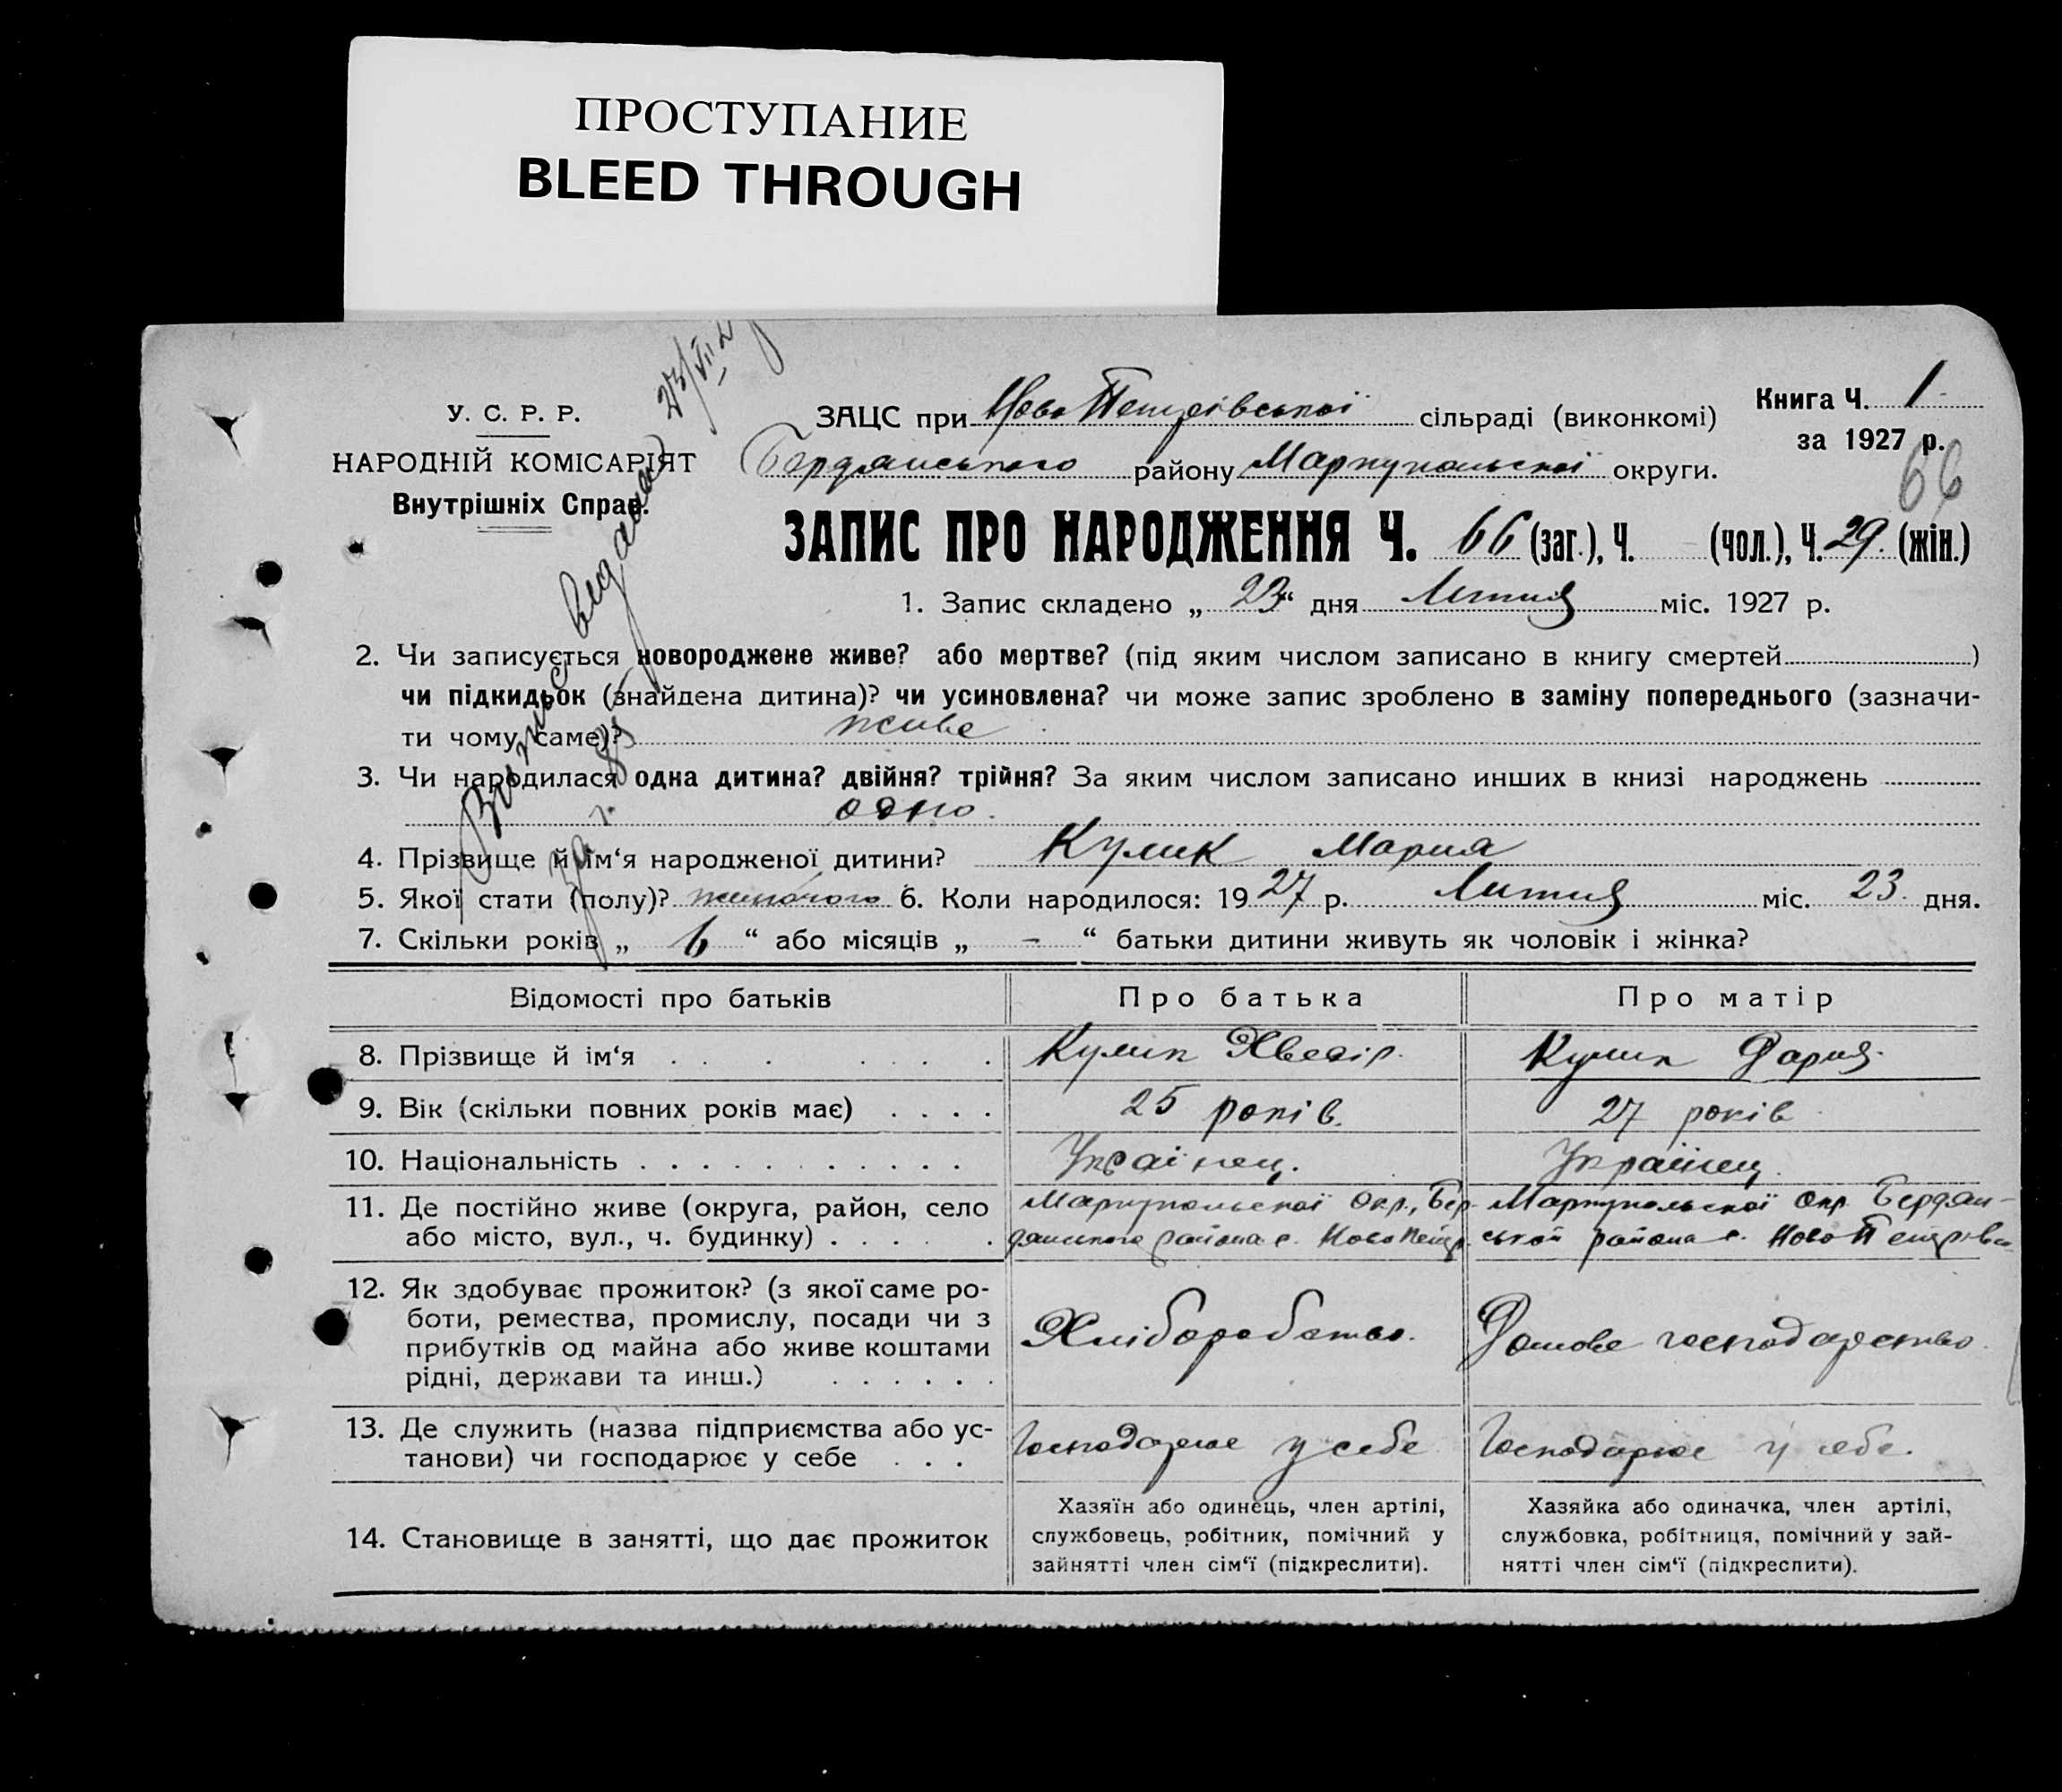 ПРОСТУПАНИЕ
BLEED THROUGH
У. С. Р. Р.
НАРОДНІЙ КОМІСАРІЯТ
Внутрішніх Справ.
ЗАЦС при Ново Петрівської сільраді (виконкомі)
Бердянського району Маріупольської округи.
Книга Ч. 1
за 1927 р.
66
ЗАПИС ПРО НАРОДЖЕННЯ Ч. 66 (заг.), Ч. (чол.), Ч. 29. (жін.)
1. Запис складено „ 23 “ дня Лютня міс. 1927 р.
2. Чи записується новороджене живе? або мертве? (під яким числом записано в книгу смертей )
чи підкидьок (знайдена дитина)? чи усиновлена? чи може запис зроблено в заміну попереднього (зазначи-
ти чому саме)? живе
3. Чи народилася одна дитина? двійня? трійня? За яким числом записано инших в книзі народжень
одно.
4. Прізвище й ім‘я народженої дитини? Кулик Мария
5. Якої стати (полу)? жиночого 6. Коли народилося: 1927 р. Лютня міс. 23. дня.
7. Скільки років „ 6 “ або місяців „ – “ батьки дитини живуть як чоловік і жінка?
Відомості про батьків Про батька Про матір
8. Прізвище й ім‘я Кулик Хведір. Кулик Дария.
9. Вік (скільки повних років має) 25 років. 27 років
10. Національність Українец. Українец.
11. Де постійно живе (округа, район, село Маріупольської Окр., Бер- Маріупольської Окр. Бердян-
або місто, вул., ч. будинку) дянського района с. Ново Петр. ської района с. Ново Петрівк
12. Як здобуває прожиток? (з якої саме ро-
боти, ремества, промислу, посади чи з
прибутків од майна або живе коштами
рідні, держави та инш.)
Хліборобство. Домове господарство.
13. Де служить (назва підприємства або ус-
танови) чи господарює у себе
Господарює у себе Господарює у себе.
14. Становище в занятті, що дає прожиток
Хазяїн або одинець, член артілі,
службовець, робітник, помічний у
зайнятті член сім‘ї (підкреслити).
Хазяйка або одиначка, член артілі,
службовка, робітниця, помічний у зай-
нятті член сім‘ї (підкреслити).
Випис видана 23/VII